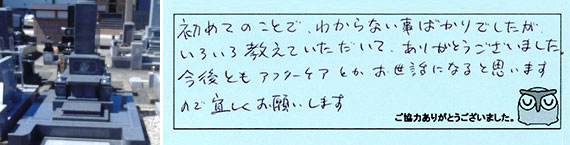 初めてのことで、わからない事ばかりでしたが、
いろいろ教えていただいて、ありがとうございました。
今後とも アフターケアとか、お世話になると思います
ので宜しくお願いします
ご協力ありがとうございました。